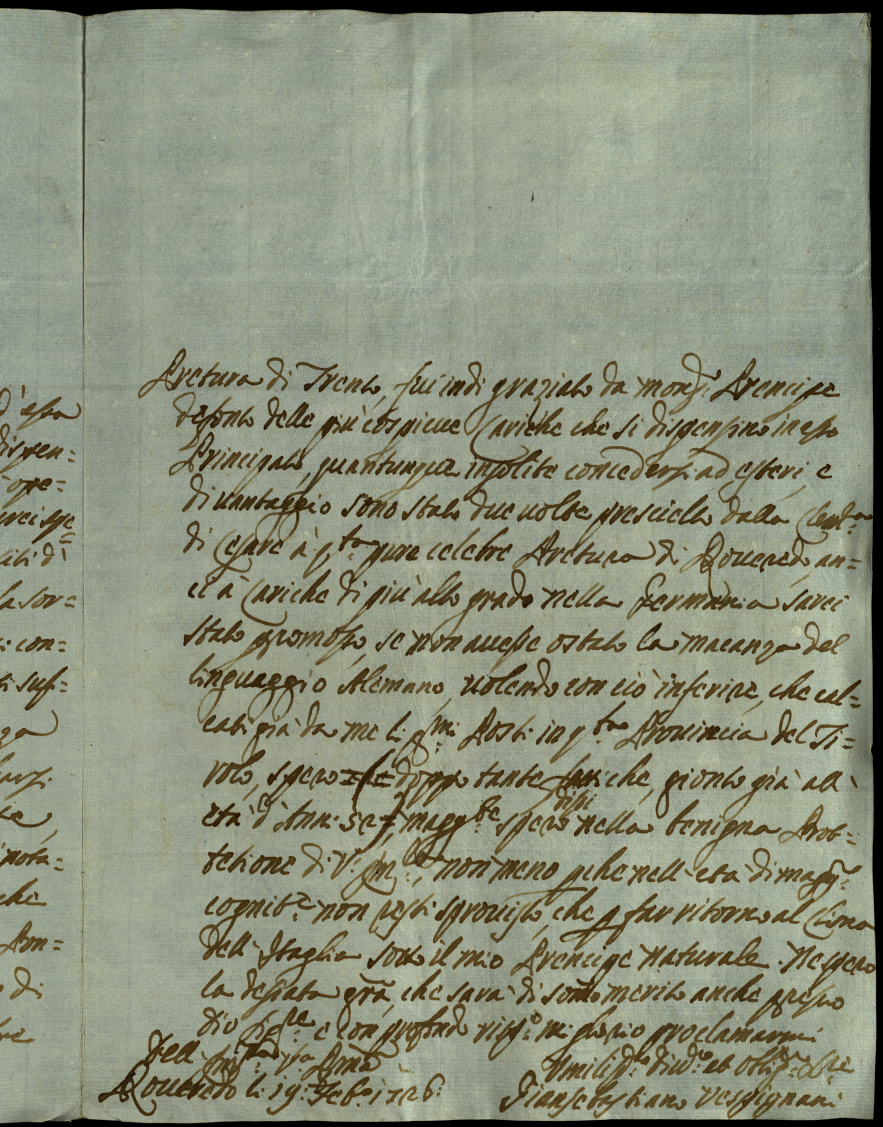 d'essa
dispen=
ope=
la sor=
con=
ti sufi=
che
Pretura di Trento, fui indi graziato da monsr. Prencipe
defonto delle più cospicue Cariche che si dispensino in esso
Principato, quantunque insolite concedersi ad esteri, e
di vantaggio sono stato due volte prescielto dalla
di Cesare à qta. pure celebre Pretura di Roveredo, an=
ci à Cariche di più alto grado nella Germania sarei
stato promosso, se non avesse ostato la mancanza del
linguaggio Alemano, volendo con ciò inferire, che cal=
cati già da me li pmi. Posti in qta. Provincia del Ti=
rolo, spero doppo tante fatiche, gionto già all'
età d'Anni 52 maggte. spero nella benigna Prot=
tetione di V. non meno perche nell'età di magr.
cognite. non resti sprovisto, che p far ritorno al Clima
dell'Itaglia sotto il mio Prencipe naturale. Ne spero
la desiata gra, che sarà di sommo merito anche presso
Dio e con profondo rispo. mi glorio proclamarmi
Dell
Umiliss. Divo. et Obligo.
Roveredo li 19. Feb. 1726. Giansebastiano Vespignani